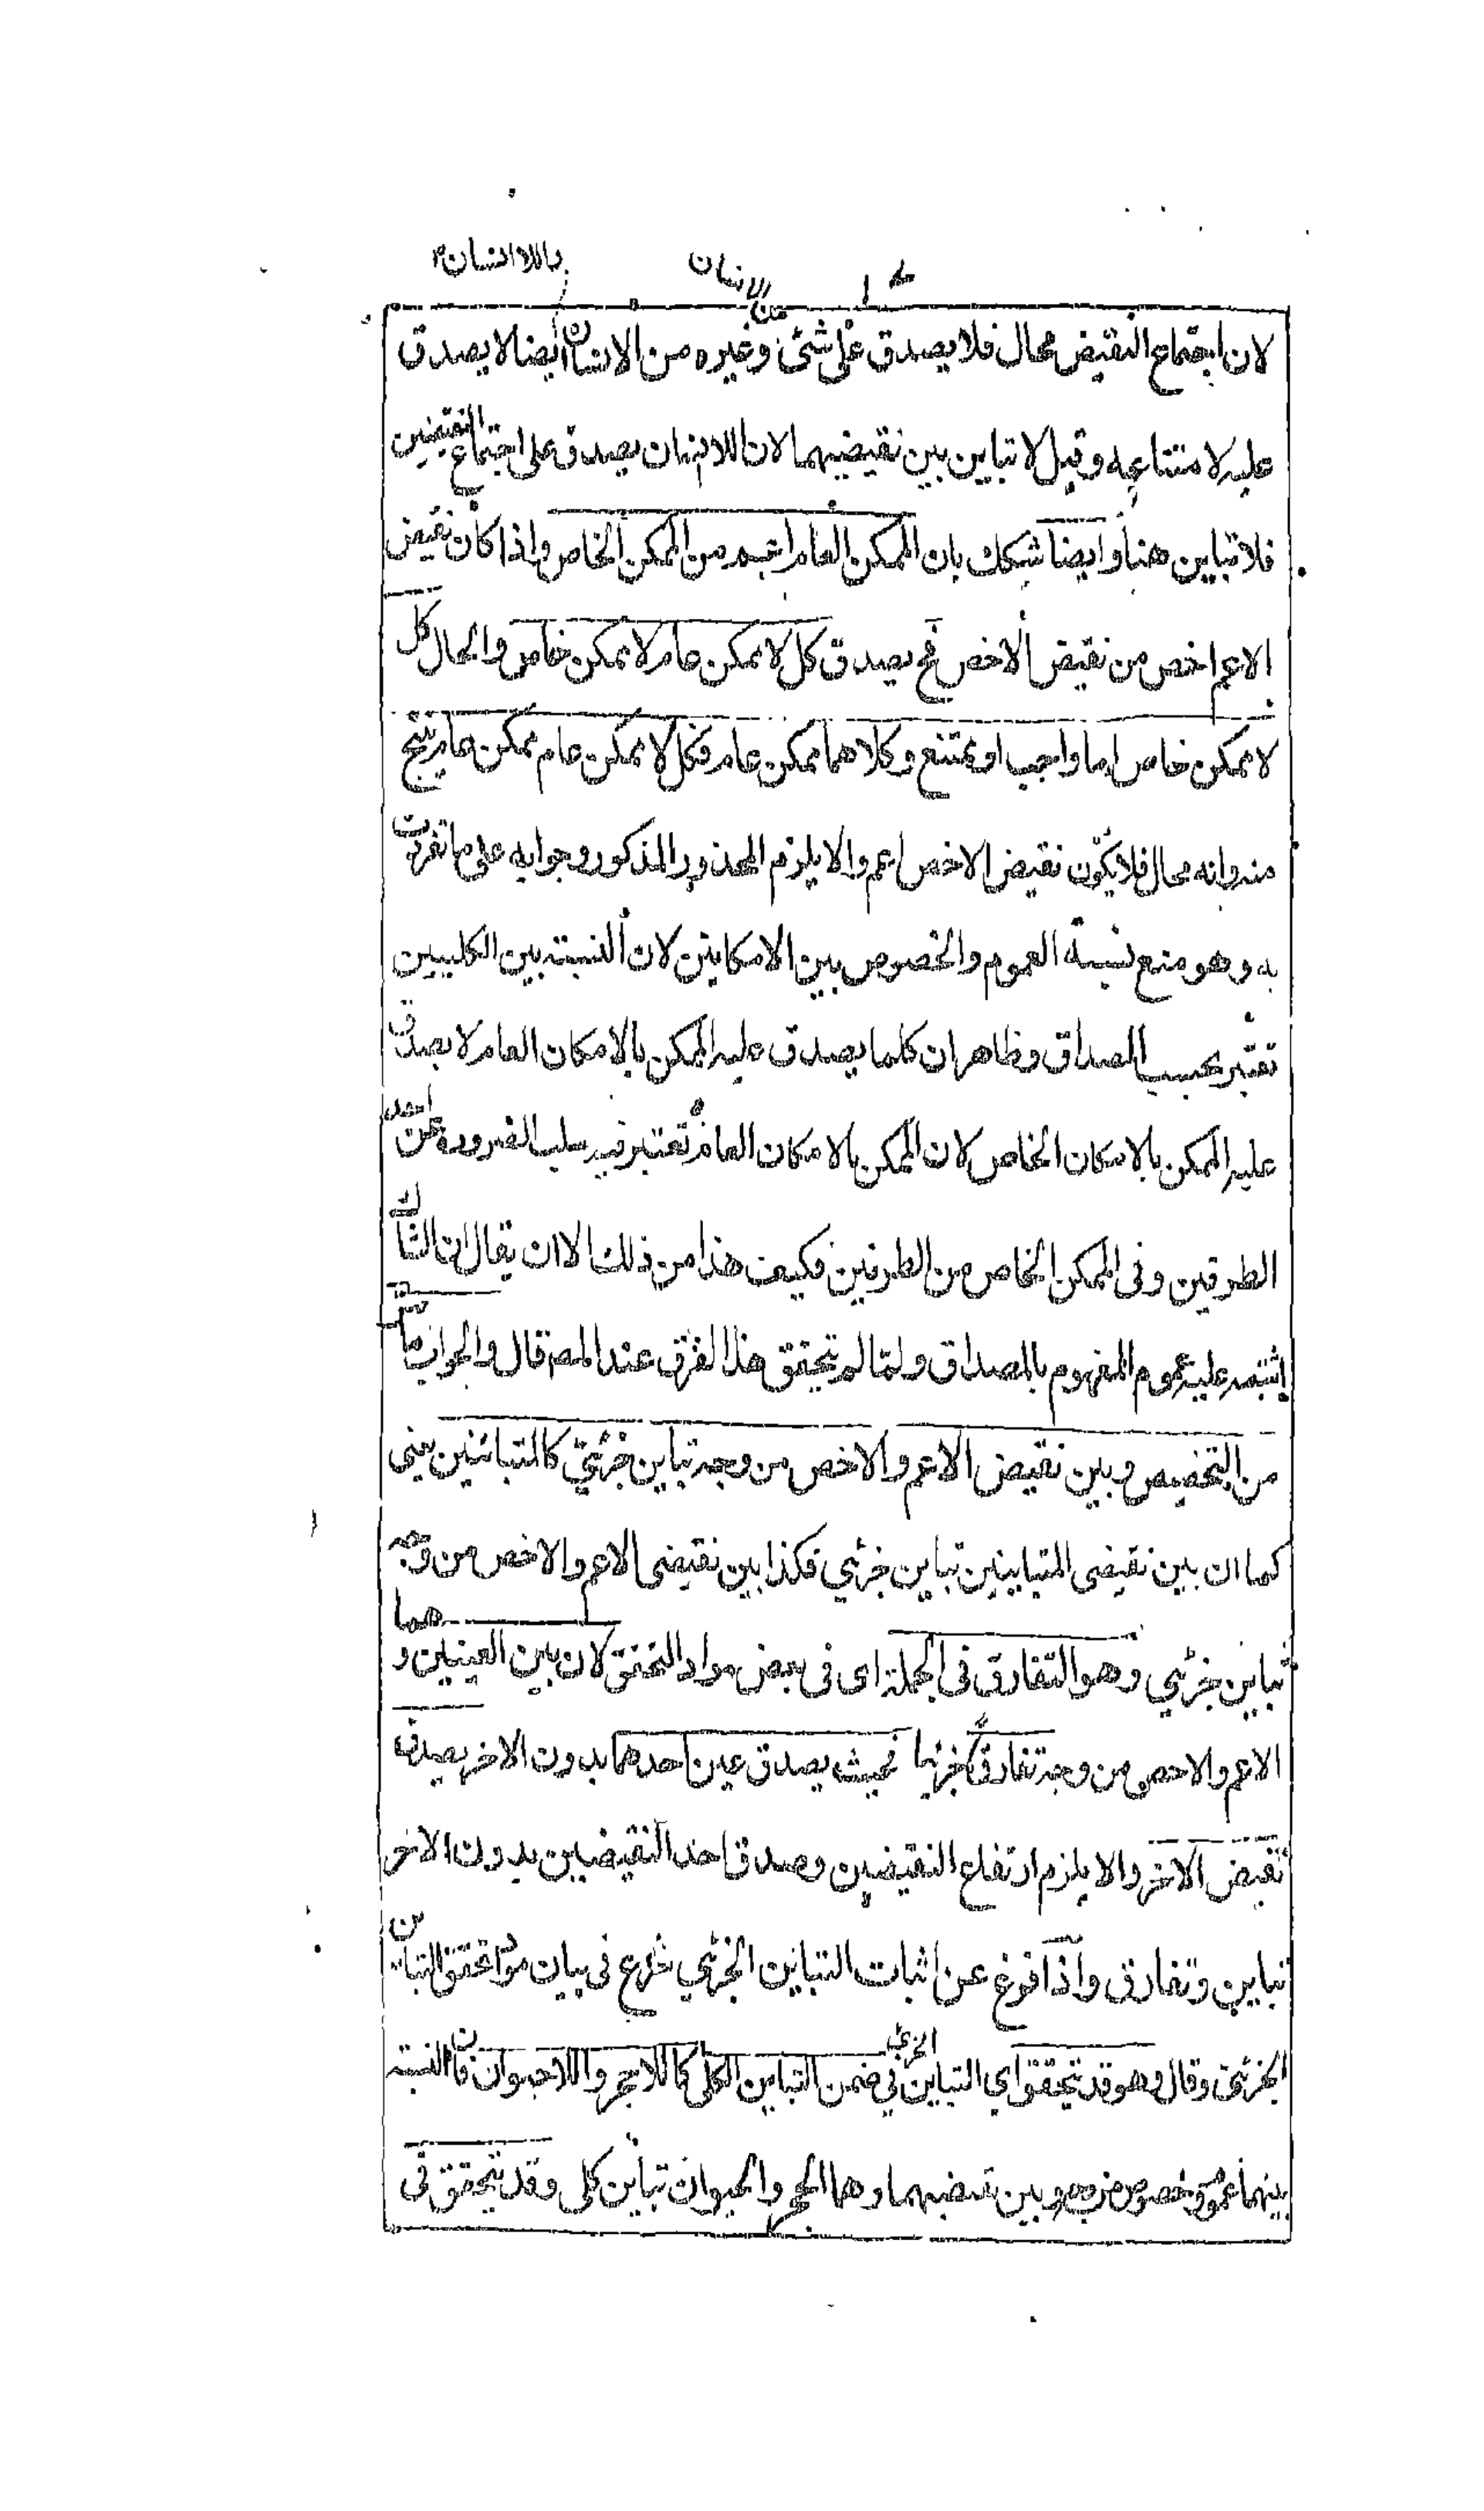 باللاانسان
الانسان
من
لان اجتماع النقيض محال فلا يصدق على شئ وغيره من الانسان ايضا لا يصدق
عليه لامتناعه وقيل لا تباين بين نقيضيهما لان اللاانسان يصدق على اجتماع النقيضين
فلا تباين هنا وايضا شكك بان الممكن العام اعم من الممكن الخاص واذا كان نقيض
الاعم اخص من نقيض الاخص فح يصدق كل لا ممكن عام لا ممكن خاص والحال كل
لا ممكن خاص اما واجب او ممتنع وكلاهما ممكن عام فكل لا ممكن عام ممكن عام ينتج
منه وانه محال فلا يكون نقيض الاخص اعم والا يلزم المحذور المذكور وجوابه على ما تفردت
به وهو منع نسبة العموم والخصوص بين الامكانين لان النسبة بين الكليين
تعتبر بحسب المصداق وظاهر ان كلما يصدق عليه الممكن بالامكان العام لا يصدق
عليه الممكن بالامكان الخاص لان الممكن بالامكان العام تعتبر فيه سلب الضرورة عن احد
الطرفين وفى الممكن الخاص من الطرفين فكيف هذا من ذلك الا ان يقال ان الشاك
اشتبه عليه عموم المفهوم بالمصداق ولما لم يتحقق هذا الفرق عند المصر قال والجواب ما مر
من التخصيص وبين نقيض الاعم والاخص من وجه تباين جزئي كالمتبائنين يعنى
كما ان بين نقيضى المتباينين تباين جزئي فكذا بين نقيضى الاعم والاخص من وجه
تباين جزئي وهو التفارق فى الجملة اى فى بعض مواد التحقق لان بين العينين وهما
الاعم والاخص من وجه تفارقا جزئيا فحيث يصدق عين احدهما بدون الاخر يصدق
نقيض الاخر والا يلزم ارتفاع النقيضين وصدق احد النقيضين بدون الاخر
تباين وتفارق واذا فرغ عن اثبات التباين الجزئي شرع فى بيان مواد تحقق التباين
الجزئى وقال وهو قد يتحقق اي التباين الجزئي في ضمن التباين الكلى كاللاحجر واللاحيوان فان النسبة
بينهما عموم وخصوص من وجه وبين نقيضيهما وهما الحجر والحيوان تباين كلى وقد يتحقق فى